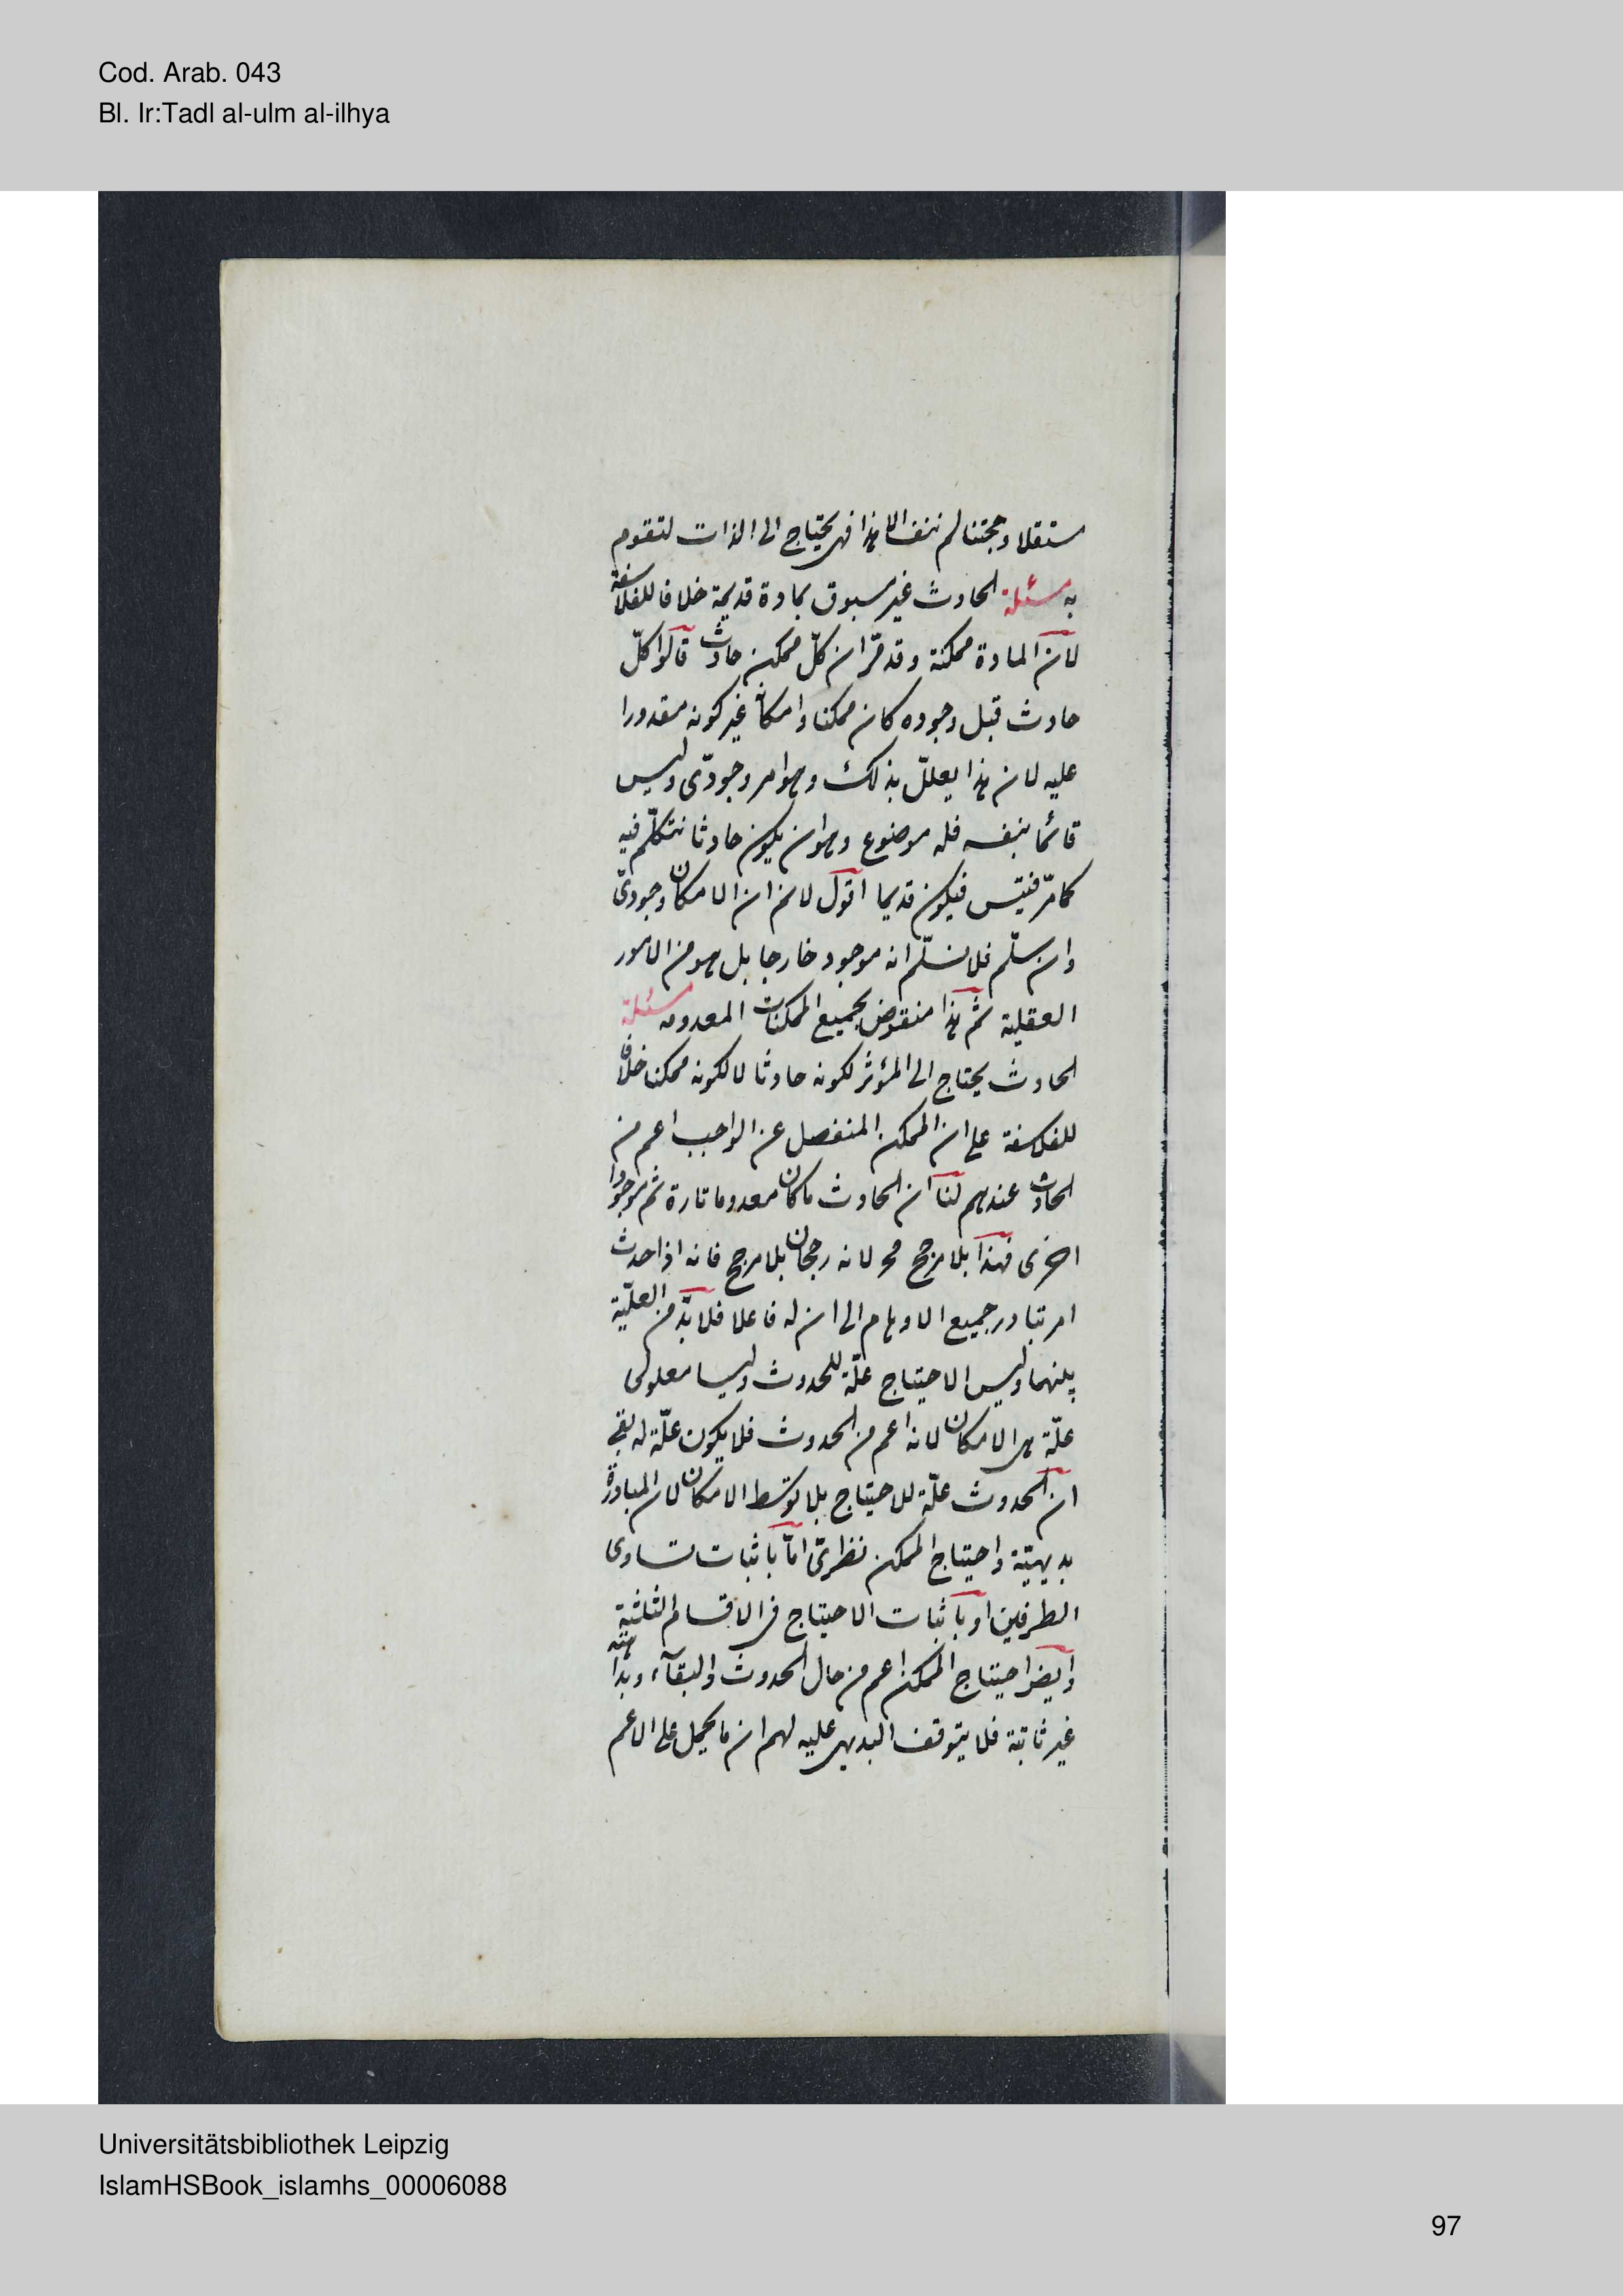 Cod. Arab. 043
Bl. Ir:Tadl al-ulm al-ilhya
مستقلا وحجتنا لم تنف الا هذا فهى يحتاج الى الذات لتقوم
به مسئلة الحادث غير مسبوق بمادة قديمة خلافا للفلاسفة
لان المادة ممكنة وقد مرّ ان كلّ ممكن حادث قالوا كلّ
حادث قبل وجوده كان ممكنا وامكانه غير كونه مقدورا
عليه لان هذا يعلل بذلك وهو امر وجودىّ وليس
قائما بنفسه فله موضوع وهو ان يكون حادثا نتكلّم فيه
كما مرّ فيتس فيكون قديما اقول لانم ان الامكان وجودىّ
وان سلّم فلا نسلّم انه موجود خارجا بل هو من الامور
العقلية ثم هذا منقوض بجميع الممكنات المعدومه مسئلة
الحادث يحتاج الى المؤثر لكونه حادثا لا لكونه ممكنا خلافا
للفلاسفة على ان الممكن المنفصل عن الواجب اعم من
الحادث عندهم لنا ان الحادث ما كان معدوما تارة ثم موجودا
اخرى فهذا بلا مرجح مح لانه رجحان بلا مرجح فانه اذا حدث
امر تبادر جميع الاوهام الى ان له فاعلا فلا بدّ من العلّية
بينهما وليس الاحتياج علّة للحدوث وليسا معلولى
علّة هى الامكان لانه اعم من الحدوث فلا يكون علّة له بقى
ان الحدوث علّة للاحتياج بلا توسّط الامكان لان المبادرة
بديهيّة واحتياج الممكن نظرىّ امّا باثبات تساوى
الطرفين او باثبات الاحتياج فى الاقسام الثلثة
وايضا احتياج الممكن اعم من حال الحدوث والبقآء وبداهته
غير ثابتة فلا يتوقف البديهى عليه لهم ان ما يحمل على الاعم
Universitätsbibliothek Leipzig
IslamHSBook_islamhs_00006088
97